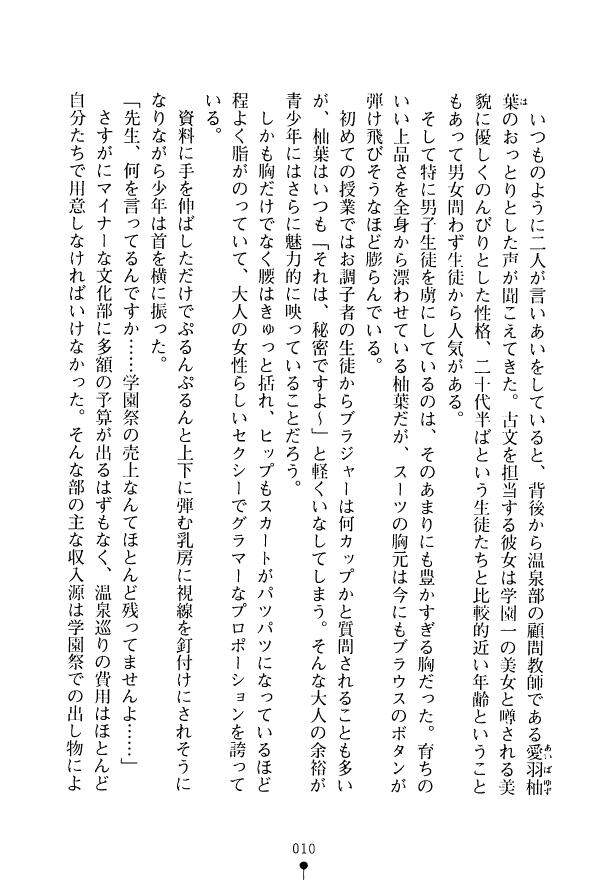 いつものように二人が言いあいをしていると、背後から温泉部の顧問教師である愛羽柚
葉のおっとりとした声が聞こえてきた。古文を担当する彼女は学園一の美女と噂される美
貌に優しくのんびりとした性格、二十代半ばという生徒たちと比較的近い年齢ということ
もあって男女問わず生徒から人気がある。
そして特に男子生徒を虜にしているのは、そのあまりにも豊かすぎる胸だった。育ちの
いい上品さを全身から漂わせている柚葉だが、スーツの胸元は今にもブラウスのボタンが
弾け飛びそうなほど膨らんでいる。
初めての授業ではお調子者の生徒からブラジャーは何カップかと質問されることも多い
が、柚葉はいつも「それは、秘密ですよ～」と軽くいなしてしまう。そんな大人の余裕が
青少年にはさらに魅力的に映っていることだろう。
しかも胸だけでなく腰はきゅっと括れ、ヒップもスカートがパツパツになっているほど
程よく脂がのっていて、大人の女性らしいセクシーでグラマーなプロポーションを誇って
いる。
資料に手を伸ばしただけでぷるんぷるんと上下に弾む乳房に視線を釘付けにされそうに
なりながら少年は首を横に振った。
「先生、何を言ってるんですか……学園祭の売上なんてほとんど残ってませんよ……」
さすがにマイナーな文化部に多額の予算が出るはずもなく、温泉巡りの費用はほとんど
自分たちで用意しなければいけなかった。そんな部の主な収入源は学園祭での出し物によ
010